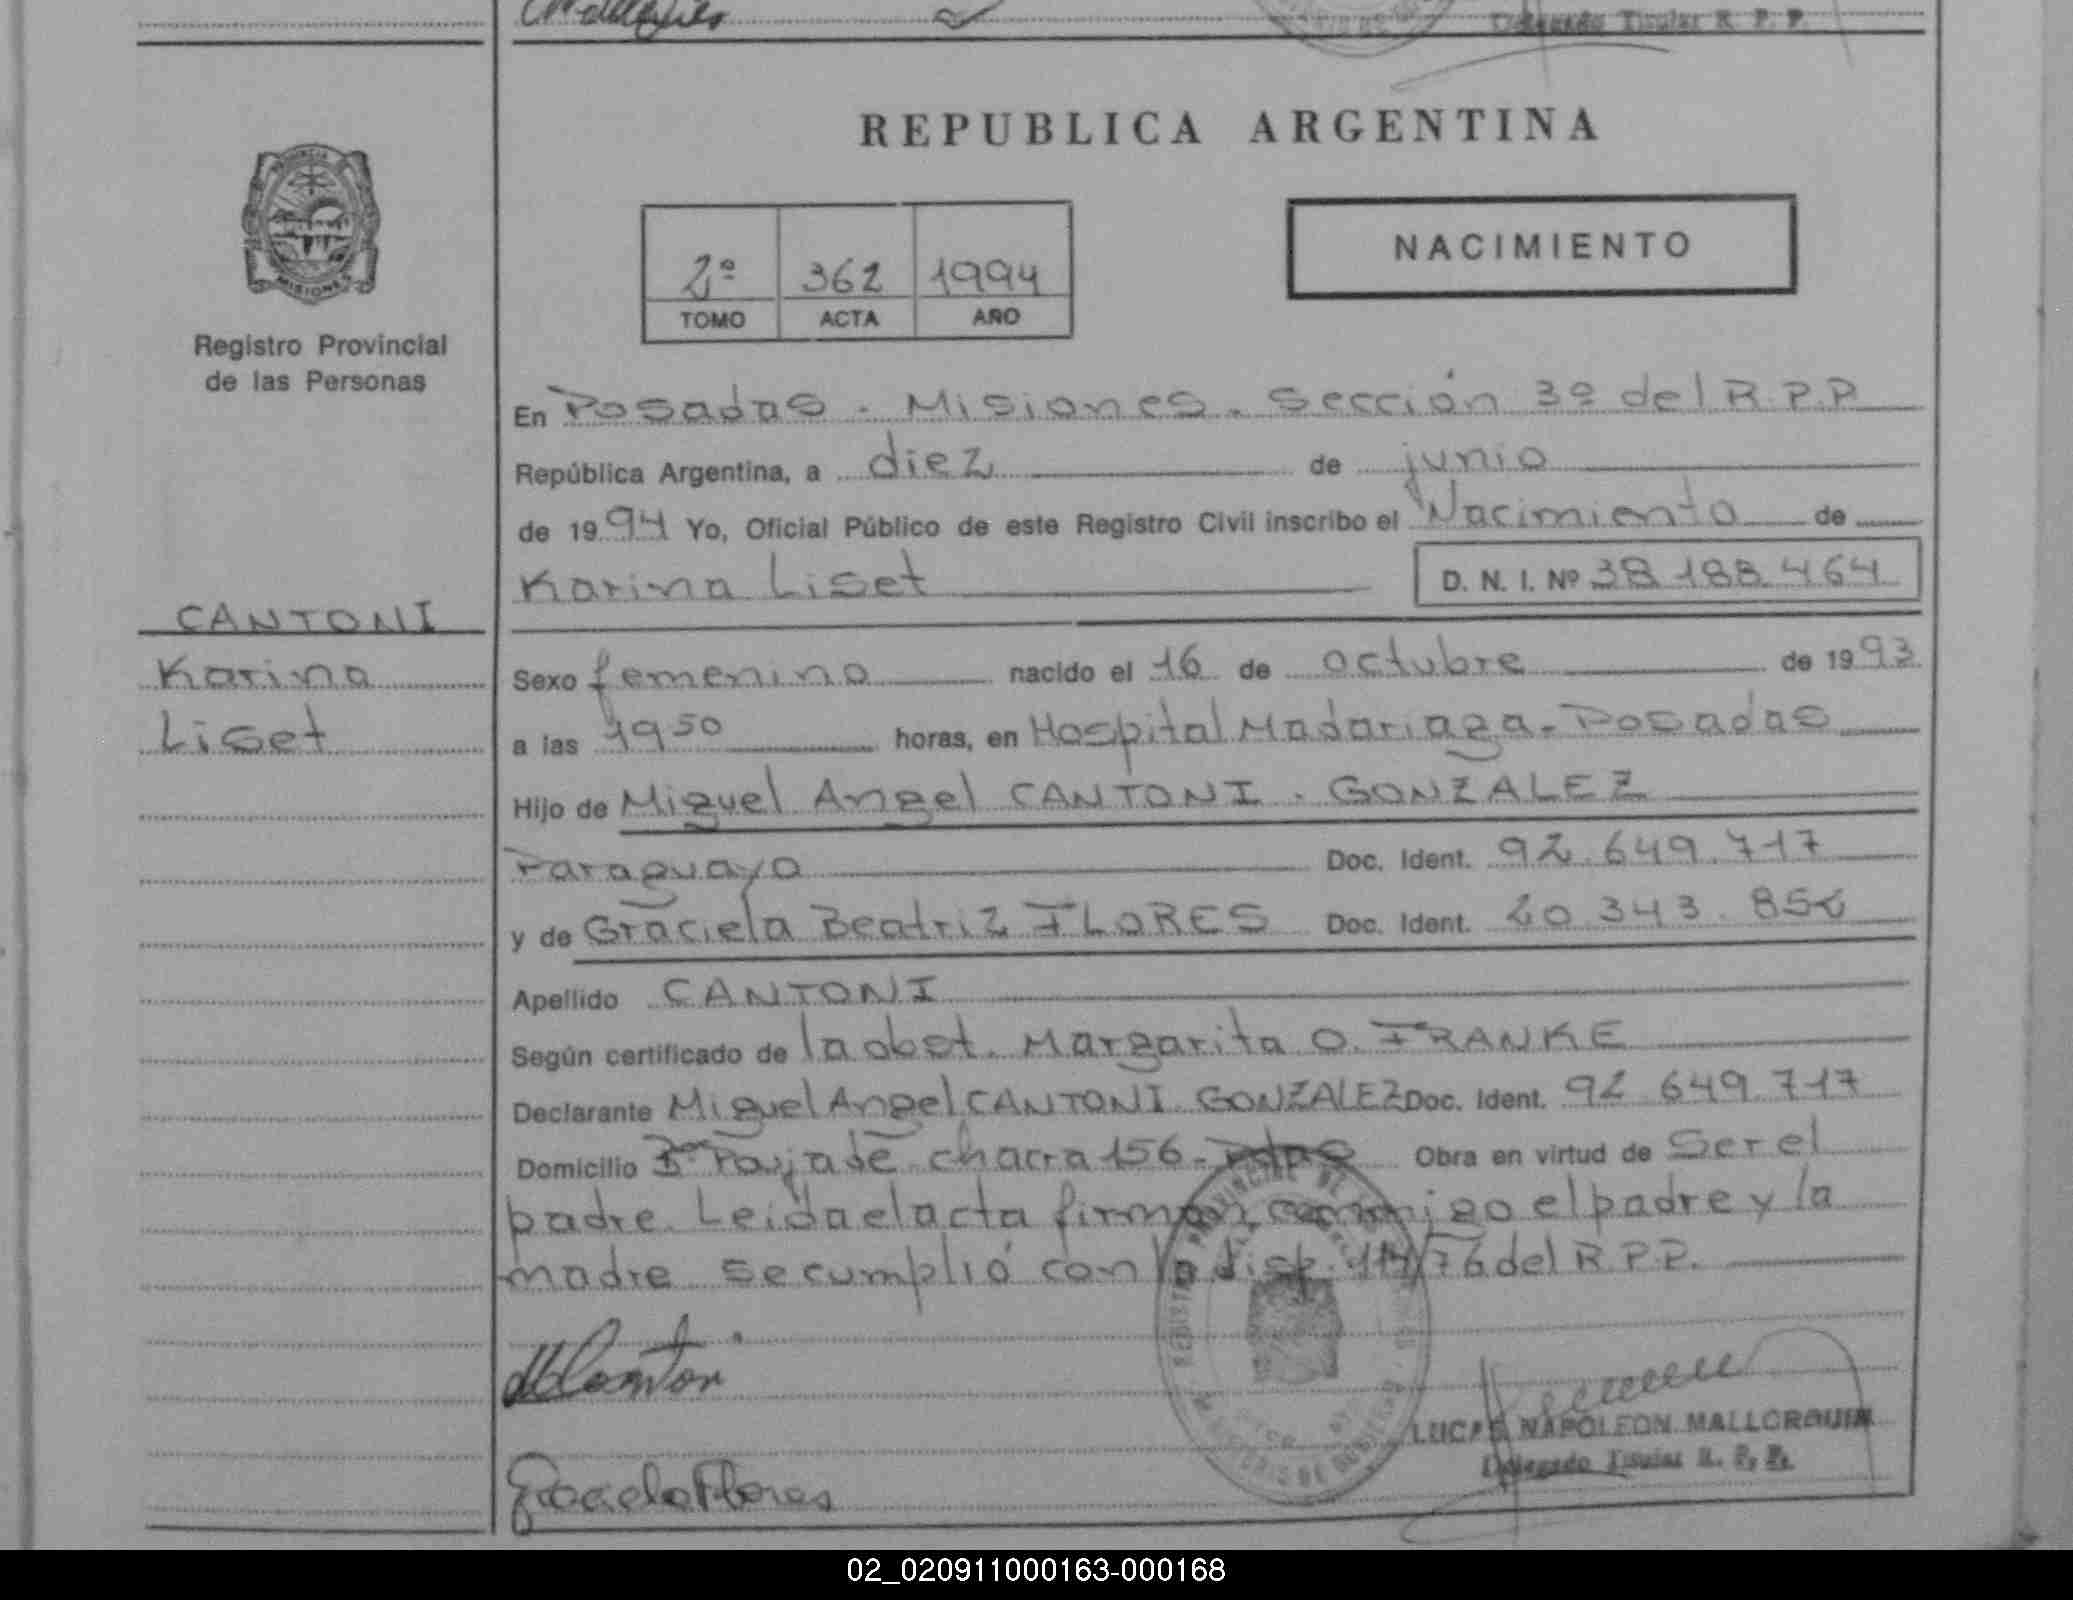 Delegado Titular R. P. P.
PROVINCIA
MISIONES
Registro Provincial
de las Personas
REPUBLICA ARGENTINA
2º 362 1994
TOMO ACTA AÑO
NACIMIENTO
En Posadas - Misiones - Sección 3º del R.P.P
República Argentina, a diez de junio
de 1994 Yo, Oficial Público de este Registro Civil inscribo el Nacimiento de
Karina Liset D. N. I. Nº 38.188.464
CANTONI
Karina
Liset
Sexo femenino nacido el 16 de octubre de 1993
a las 1950 horas, en Hospital Madariaga - Posadas
Hijo de Miguel Angel CANTONI - GONZALEZ
Paraguayo Doc. Ident. 92.649.717
y de Graciela Beatriz FLORES Doc. Ident. 20.343.852
Apellido CANTONI
Según certificado de la obst. Margarita O. FRANKE
Declarante Miguel Angel CANTONI GONZALEZ Doc. Ident. 92.649.717
Domicilio chacra 156 - Pdas Obra en virtud de Ser el
padre. Leida el acta firman conmigo el padre y la
madre se cumplió con la disp. 114/76 del R.P.P.
Graciela Flores
LUCAS NAPOLEON MALLORQUIN
Delegado Titular R. P. P.
02_020911000163-000168